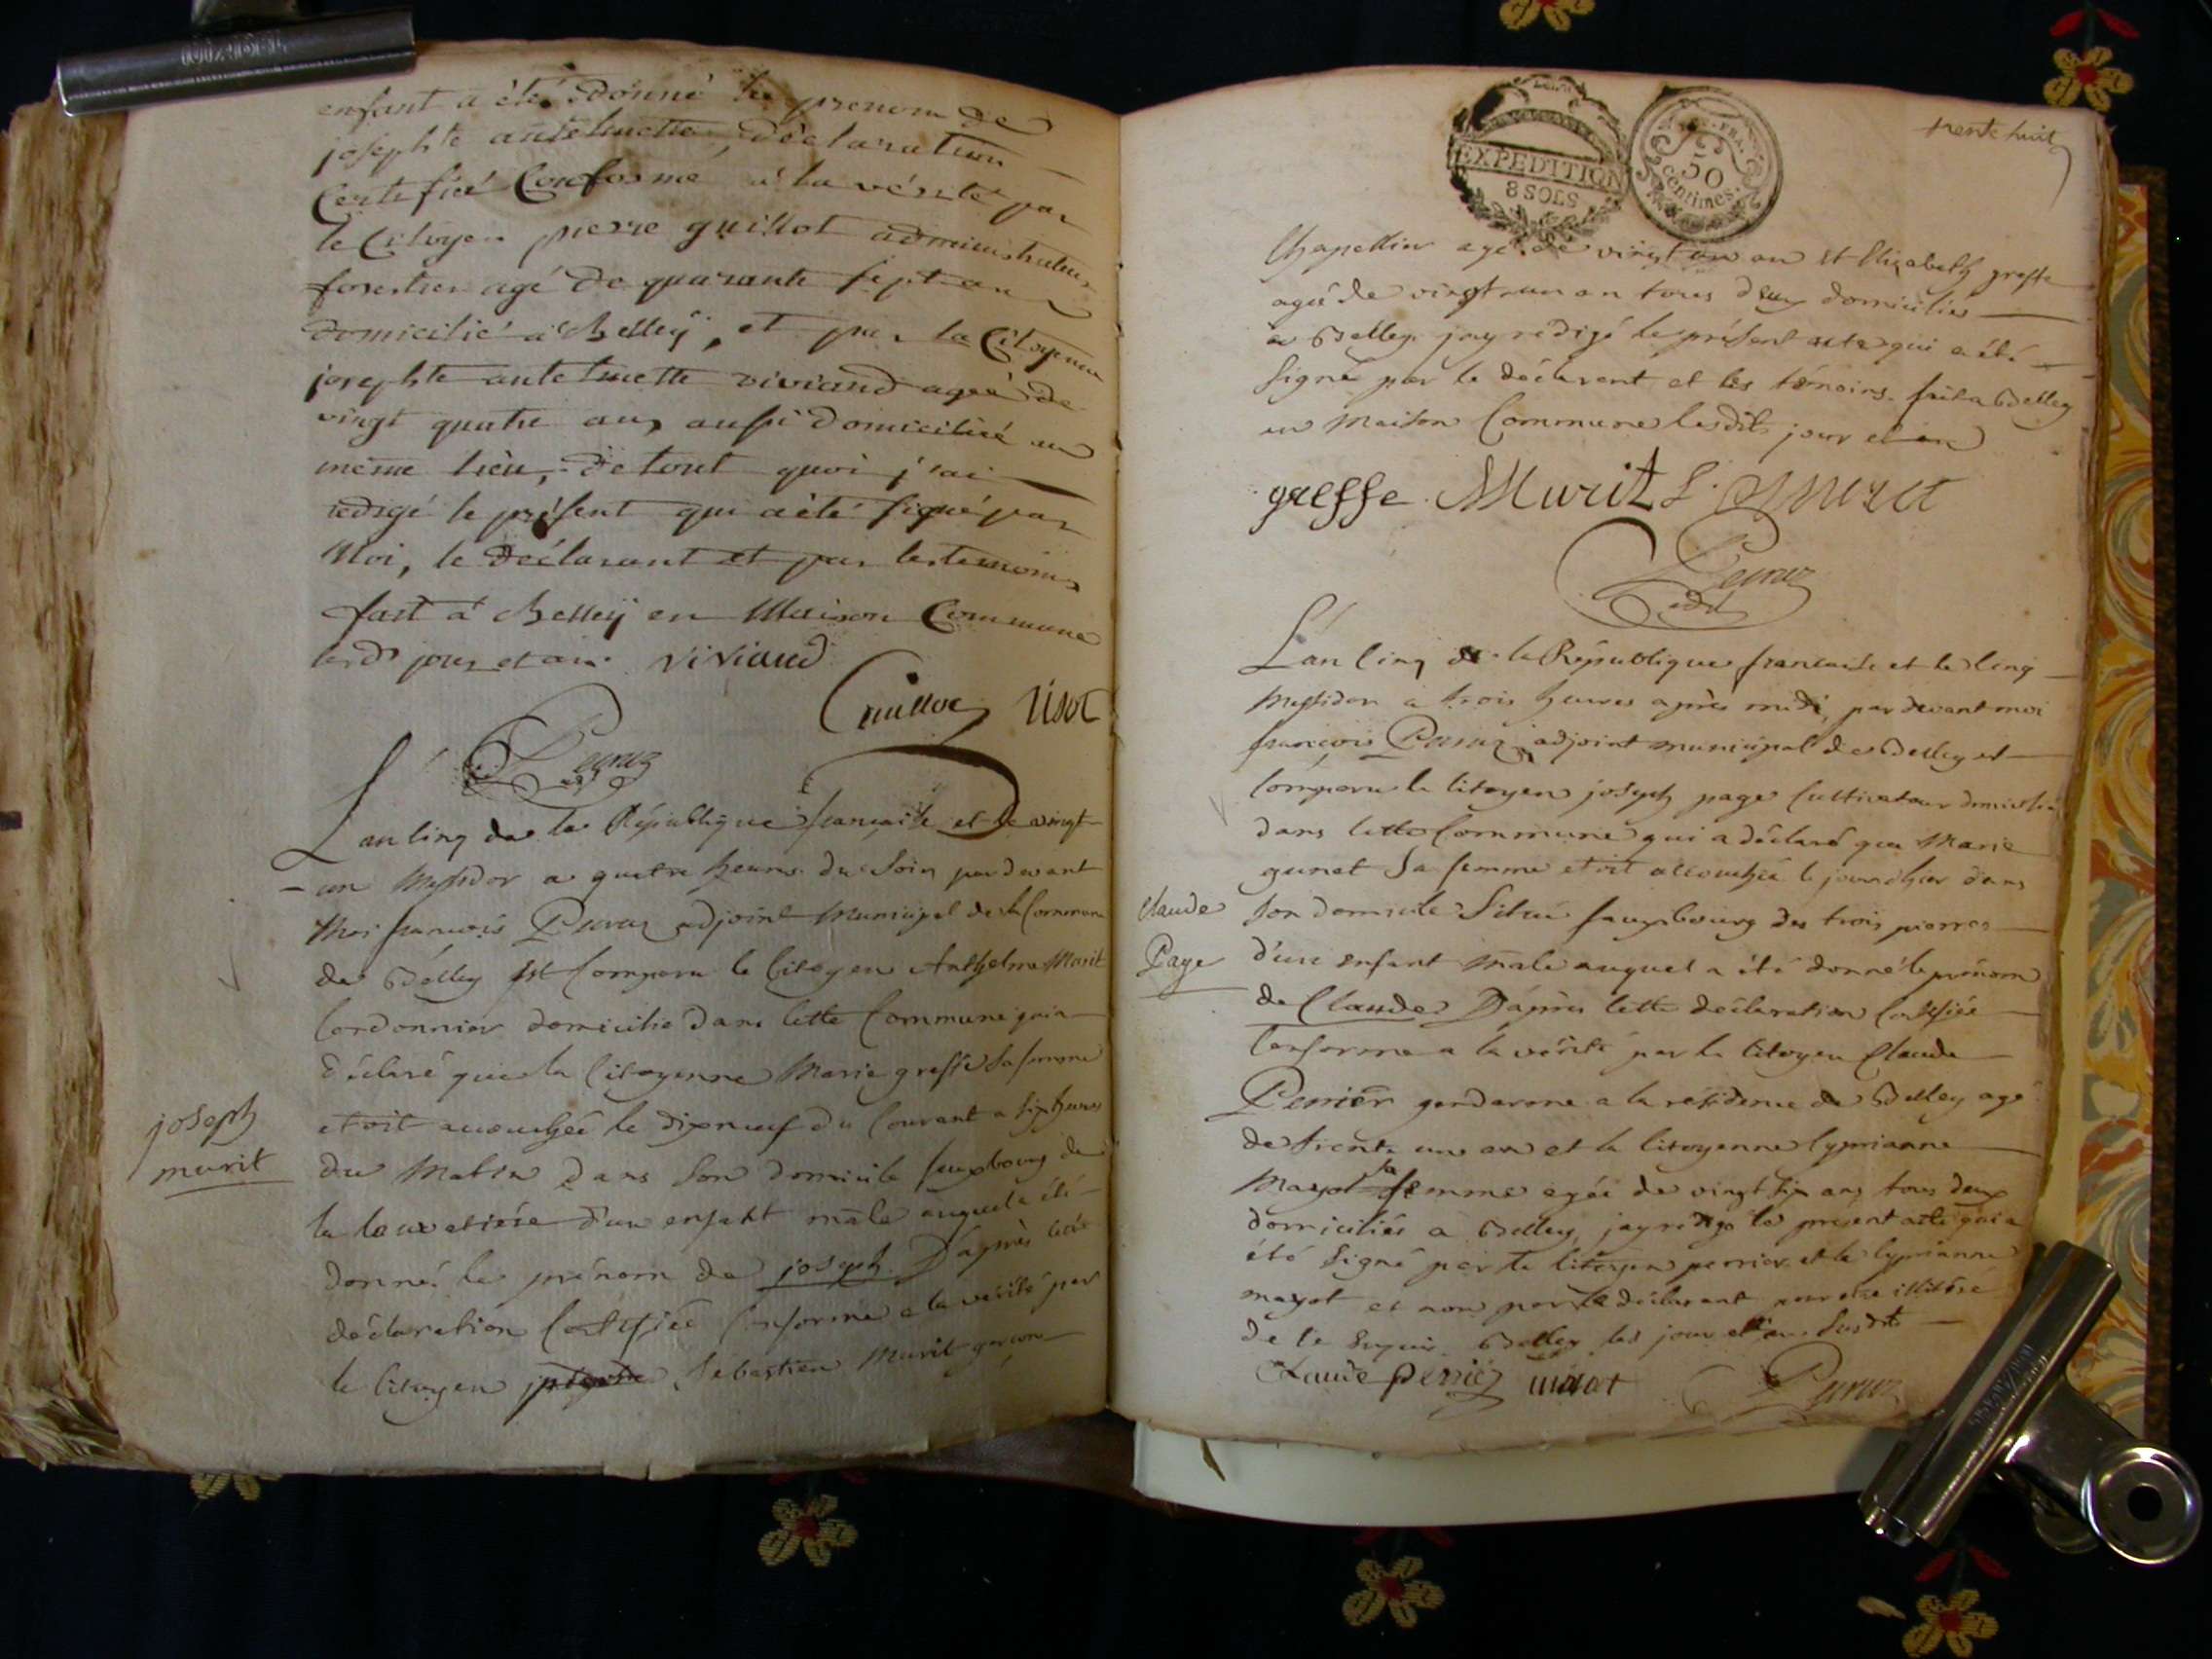 enfant a été donné le prenom de
josephte antelmette, déclaration
Certifiée Conforme à la vérité par
le Citoyen pierre guillot administrateur
forestier agé de quarante sept ans
domicilié à Belleÿ, et par la Citoyenne
josephte antelmette viviand ageé de
vingt quatre ans aussi domiciliée au
même lieu, de tout quoi j'ai
redigé le présent qui a été signé par
Moi, le déclarant et par les temoins
fait à Belleÿ en Maison Commune
lesd. jour et an. viviand
Guillot
Peyraz
adj
L'an cinq de la République française et le vingt
un Messidor a quatre heures du Soir par devant
Moi francois adjoint Municipal de la Commune
de Belley Est Comparu le Citoyen Anthelme Murit
Cordonnier domicilié dans Cette Commune qui a
déclaré que la Citoyenne Marie greffe Sa femme
etoit accouchée le dixneuf du Courant a Six heures
du Matin dans Son domicile fauxbourg de
la d'un enfant mâle auquel a été
donné le prénom de joseph. D'après cette
déclaration Certifiée Conforme a la vérité par
le Citoyen Sébastien Murit garçon
joseph
murit
trente huit
EXPEDITION
8 SOLS
50
centimes
Chapellier agé de vingt un an et Elizabeth greffe
agée de vingt un an tous deux domiciliés
a Belley. jay rédigé le présent acte qui a été
Signé par le déclarant et les témoins. fait a Belley
en Maison Commune lesdits jour et an
greffe Murit S. Murit
adj
L'an Cinq de la République francaise et le Cinq
Messidor a trois heures après midi, par devant moi
françois adjoint municipal de Belley est
Comparu le Citoyen joseph page Cultivateur domicilié
dans Cette Commune qui a déclaré que Marie
gunet Sa femme etoit accouchée le jour d'hier dans
Son domicile Situé fauxbourg des trois pierres
d'un enfant Mâle auquel a été donné le prénom
de Claude D'après Cette déclaration Certifiée
Conforme a la vérité par le Citoyen Claude
Perrier gendarme a la résidence de Belley agé
de trente un an et la Citoyenne Cyprianne
Mayot sa femme agée de vingt Six ans tous deux
domiciliés a Belley, jay rédigé le présent acte qui a
été Signé par le Citoyen perrier et la Cyprianne
mayot et non par le déclarant pour être illitéré
de Ce enquis. Belley les jour et an Susdits
Claude perrier maiot
Claude
Page